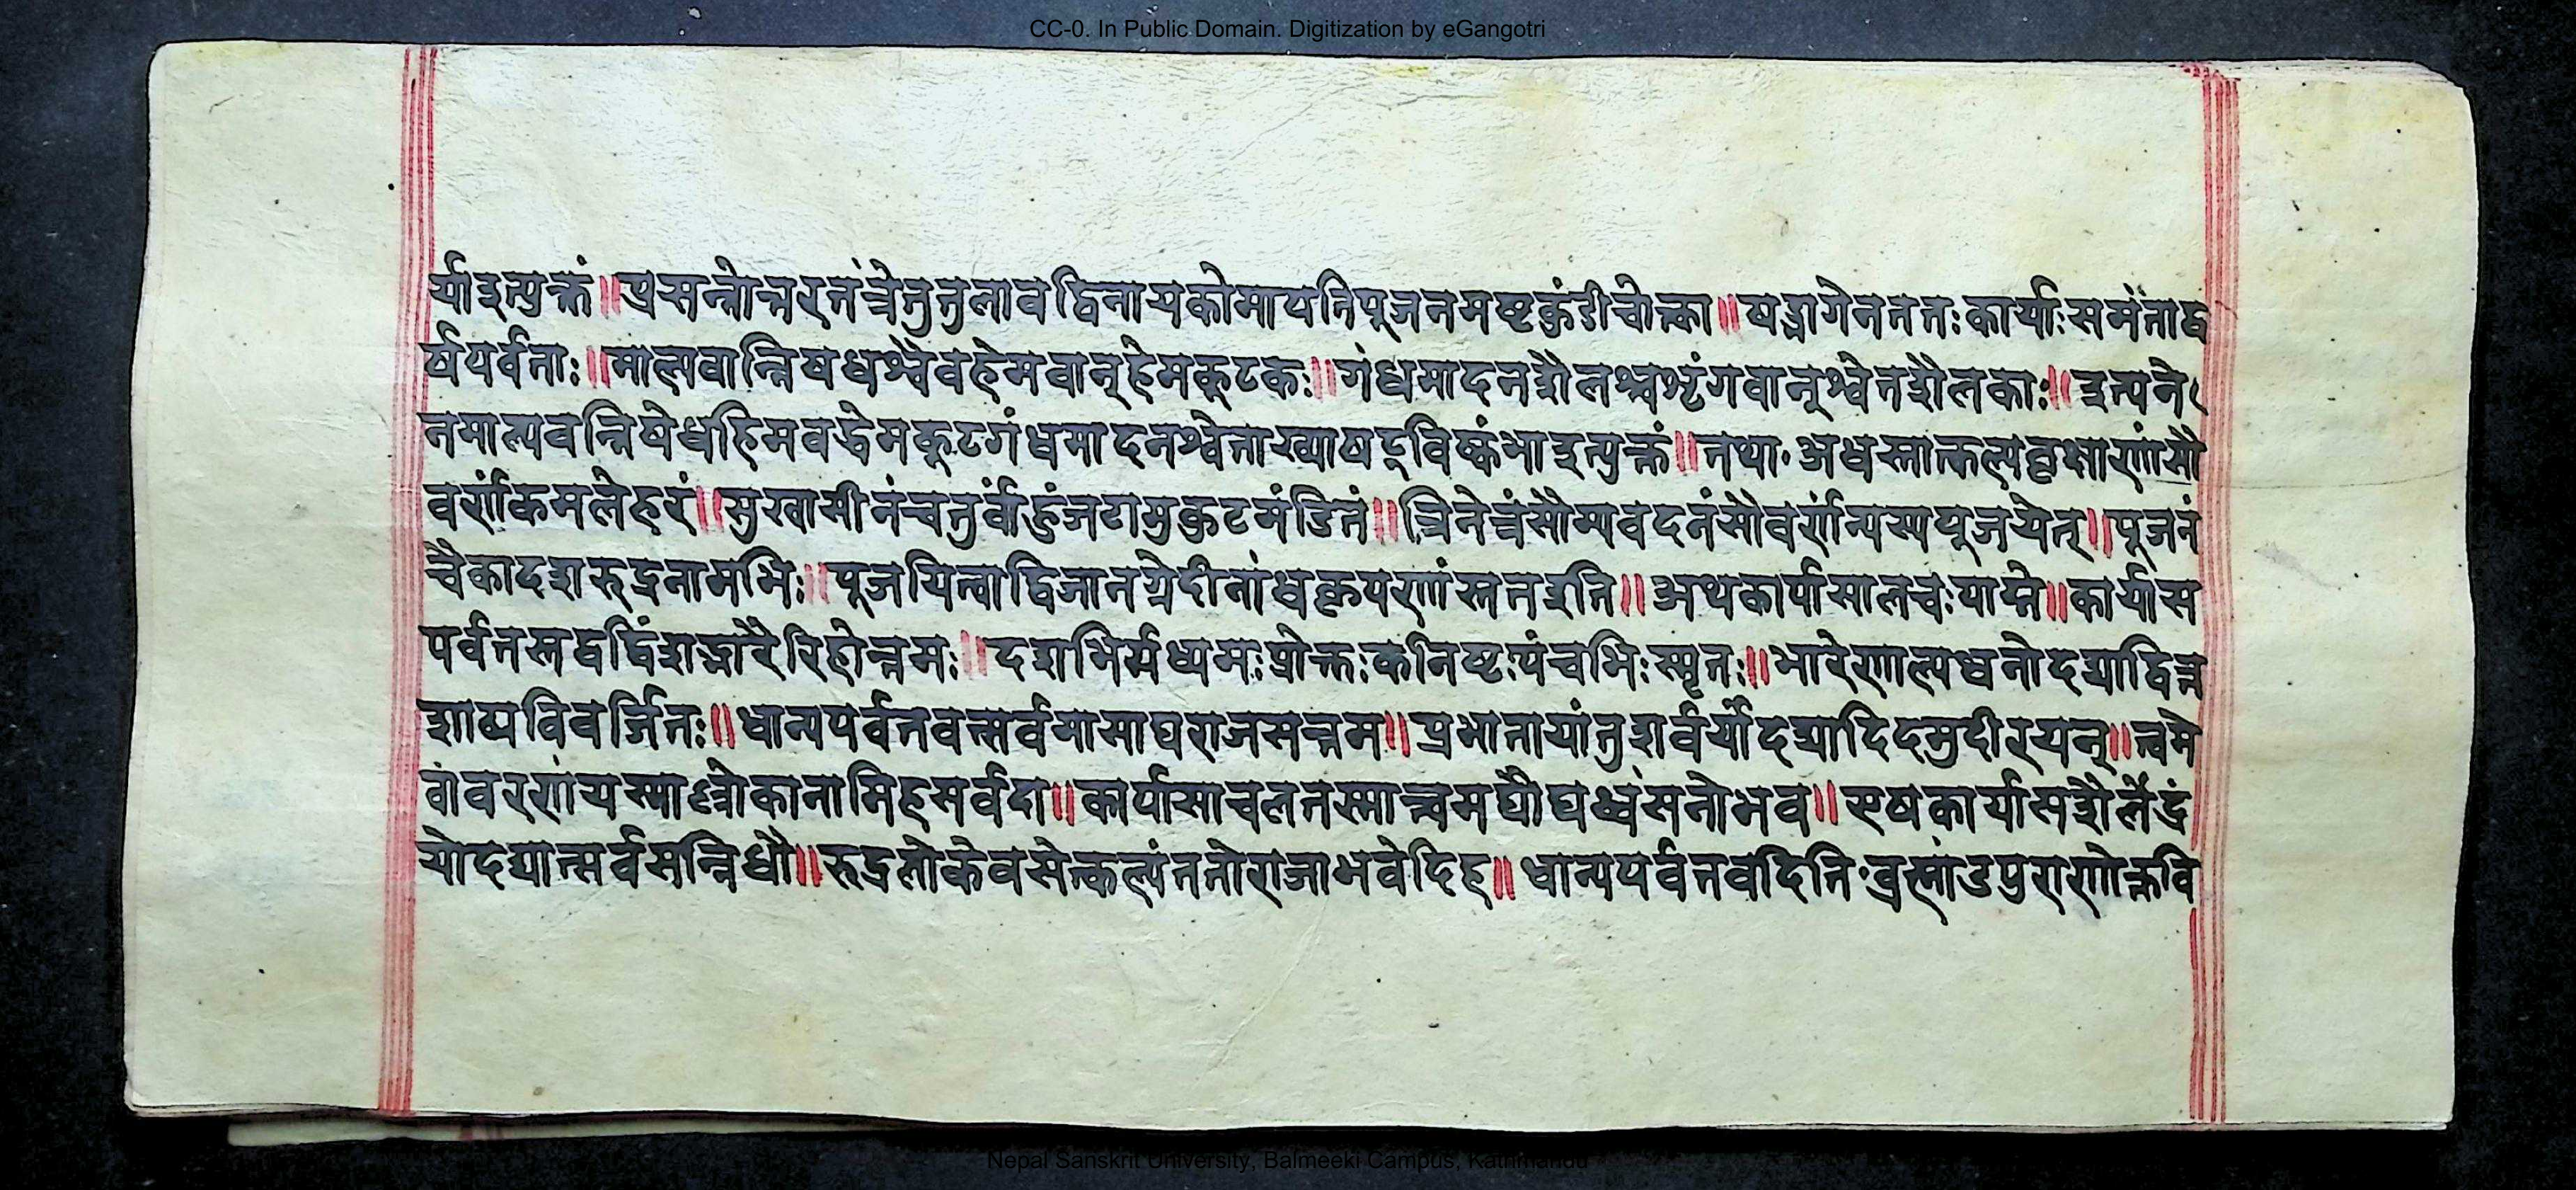 CC-0. In Public Domain. Digitization by eGangotri
र्याइत्युक्तं॥प्रसन्नोत्तरतंत्रेतुतुलावद्विनायकोमायतिपूजनमष्टकुंडीचोक्ता॥षड्भागेनततःकार्याःसमंताद्व
र्षपर्वताः॥माल्यवान्निषधश्चैवहेमवान्हेमकुटकः॥गंधमादनशैलश्चशृंगवान्श्वेतशैलकाः॥इत्यने
नमाल्यवन्निषेधहिमवद्धेमकूटगंधमादनश्वेताख्याषड्विष्कंभाइत्युक्तं॥तथा॰अधस्तात्कल्पवृक्षाणांसौ
वर्णांकमलेहरं॥सुखासीनंचतुर्वाहुंजटामुकुटमंडितं॥त्रिनेत्रंसौम्यवदनंसौवर्णांन्यस्यपूजयेत्॥पूजनं
चैकादशरुद्रनामभिः॥पूजयित्वाद्विजानग्रेदीनांधकृपणांस्ततइति॥अथकार्पासालचःपाद्मे॥कार्पास
पर्वतस्तद्वद्विंशद्भारैरिहोत्तमः॥दशभिर्मध्यमःप्रोक्तःकनिष्टःपंचभिःस्मृतः॥भारेणाल्पधनोदद्याद्वित्त
शाठ्यविवर्जितः॥धान्यपर्वतवत्सर्वमासाद्यराजसत्तम॥प्रभातायांतुशर्वर्यांदद्यादिदमुदीरयन्॥त्वमे
वावरणंयस्माल्लोकानामिहसर्वदा॥कार्पासाचलतस्मात्त्वमघौघध्वंसनोभव॥एषकार्पासशैलेंद्रं
योदद्यात्सर्वसन्निधौ॥रुद्रलोकेवसेत्कल्पंततोराजाभवेदिह॥धान्यपर्वतवदिति॰ब्रह्मांडपुराणोक्तवि
Nepal Sanskrit University, Balmeeki Campus, Kathmandu